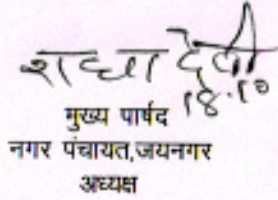 राधा देवी
18.10
मुख्य पार्षद
नगर पंचायत,जयनगर
अध्यक्ष